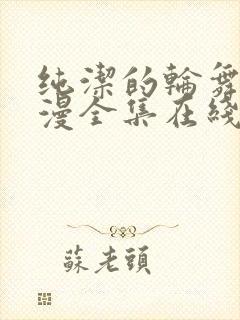 纯潔的輪舞
漫全集在綫
蘇老頭